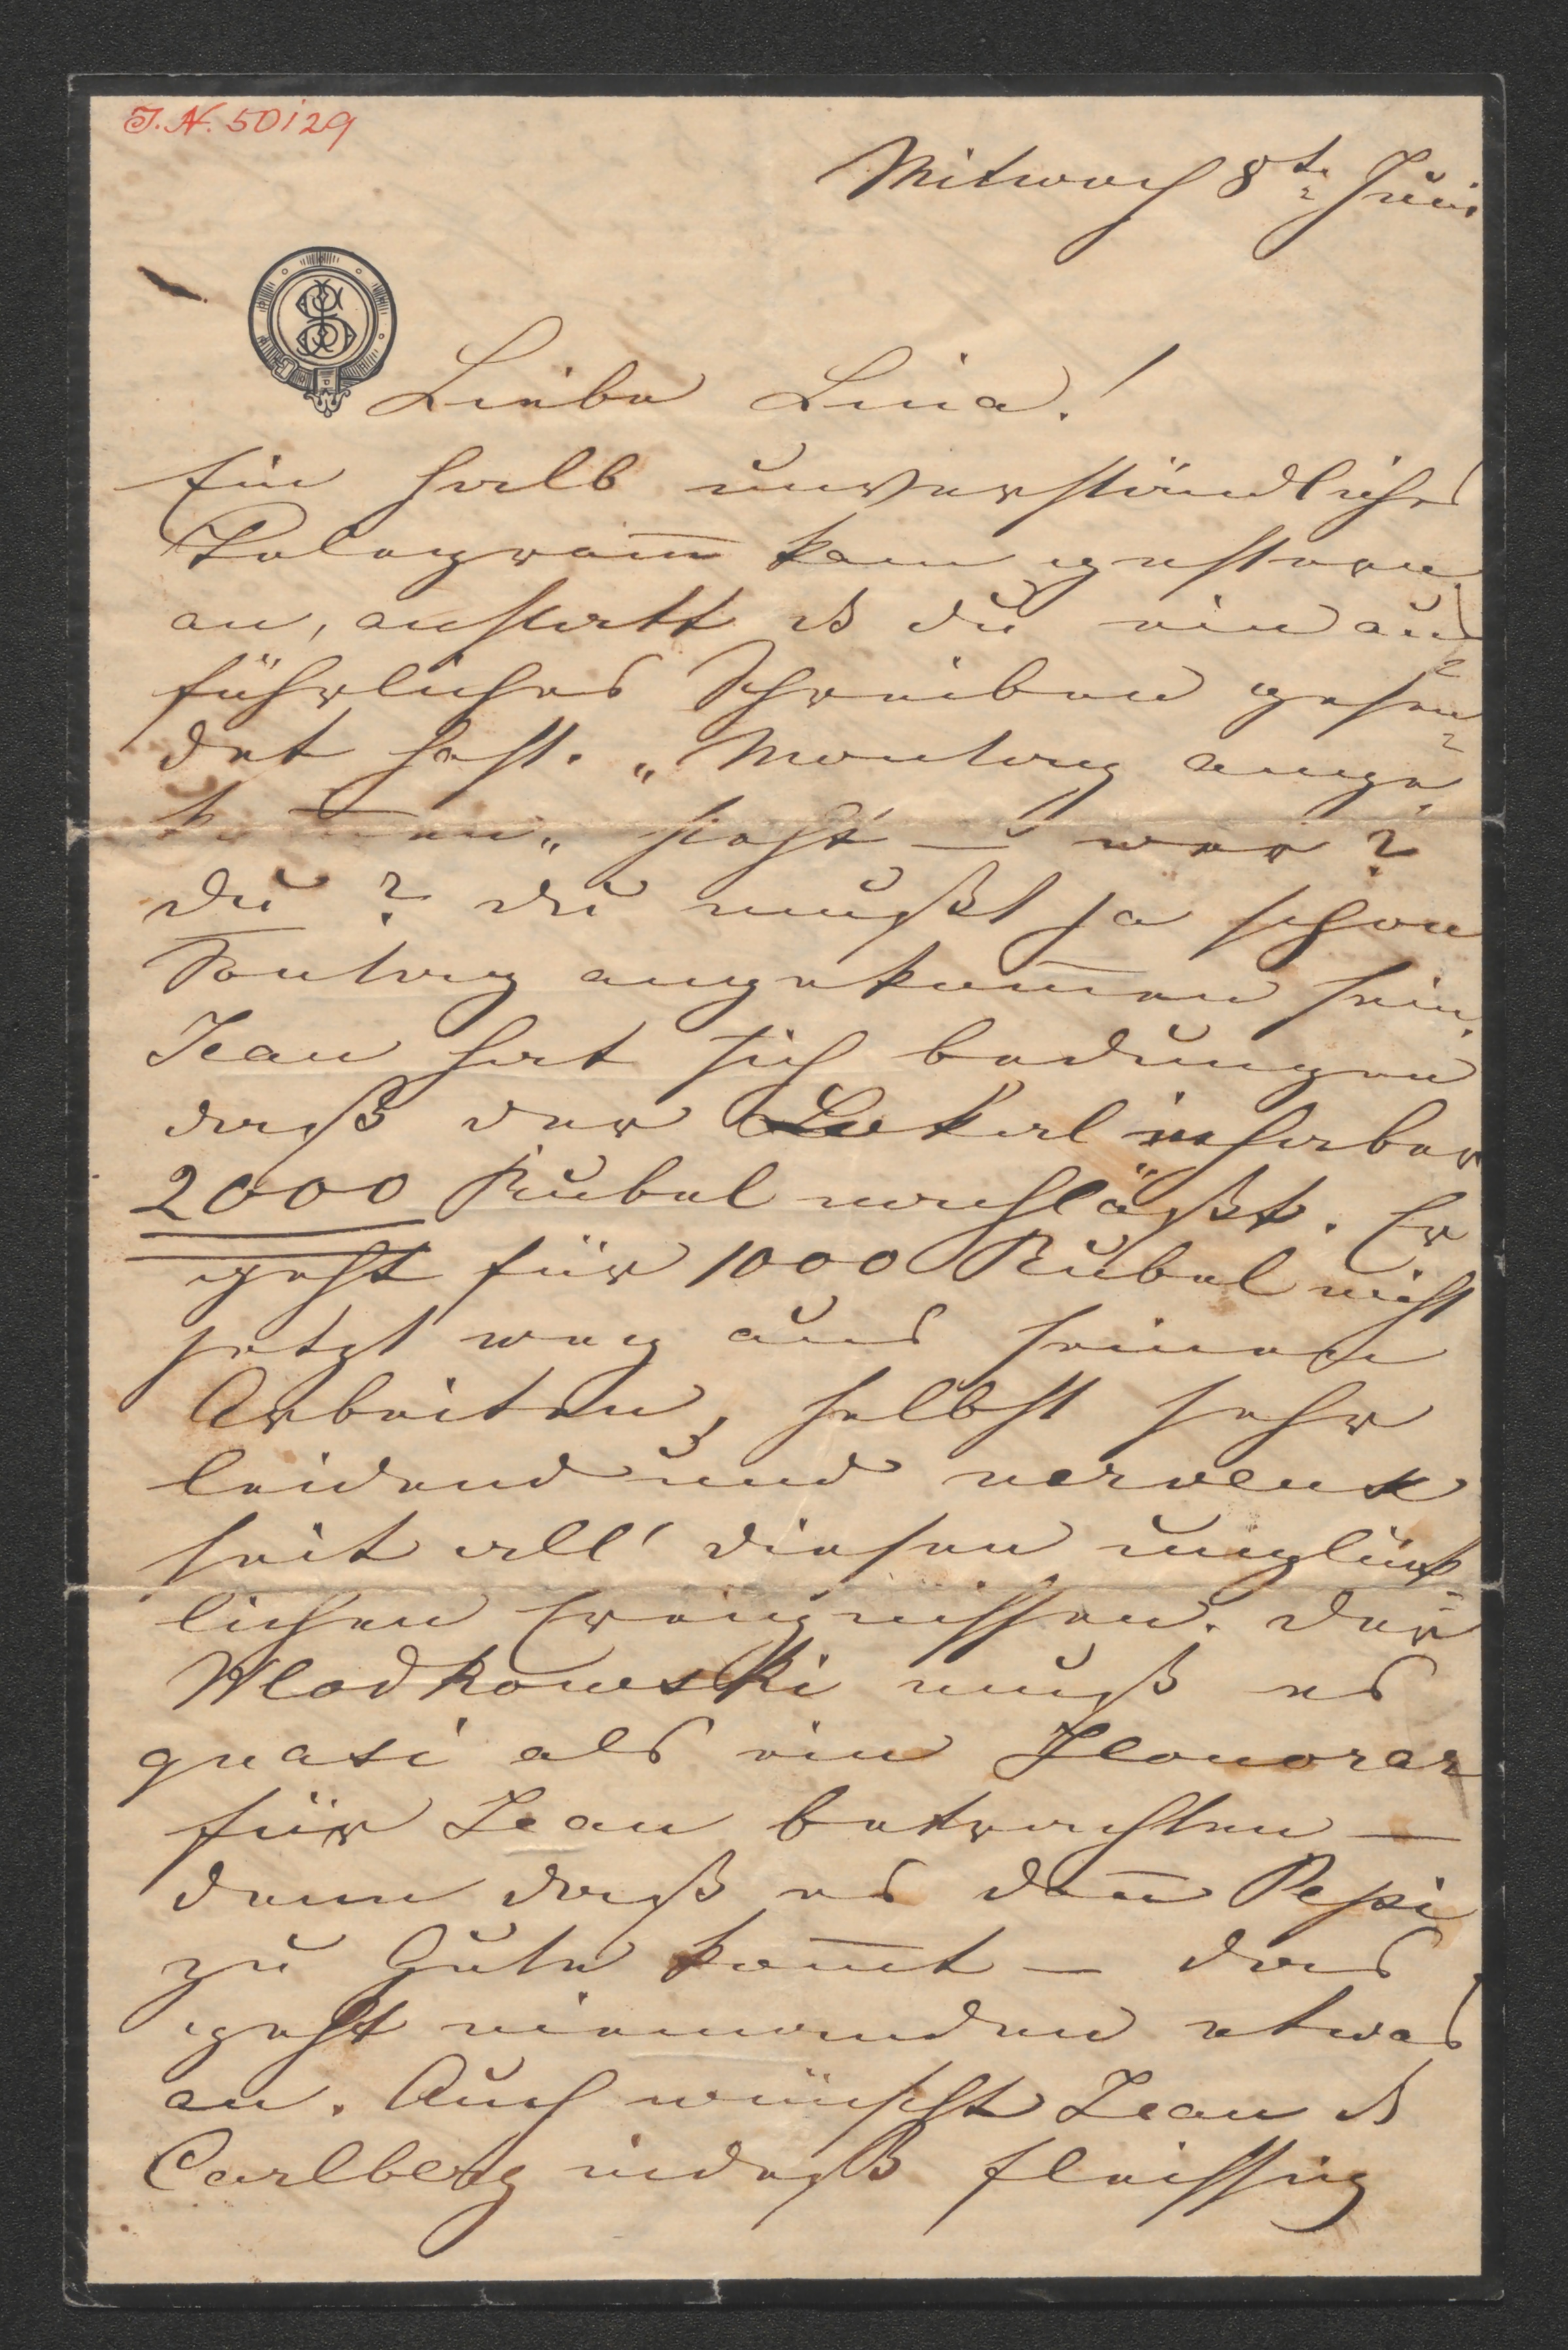 I.N. 50129
Mitwoch 8te Juni
Liebe Lina!
Ein halb unverständliches
Telegram̅ kam gestern
an, anstatt ds du ein aus=
führliches Schreiben gesen=
det hast. „Montag ange=
kom̅en„ steht — wer?
du? du mußt ja schon
Sontag angekom̅en sein.
Jean hat sich bedungen
daß der Lokalinhaber
2000 Rubel nachläßt. Er
geht für 1000 Rubel nicht
jetzt weg aus seinen
Arbeiten, selbst sehr
leidend und nervens
seit all' diesen unglück=
lichen Ereignissen. Der
Wlodkowski muß es
quasi als ein Honorar
für Jean betrachten —
denn daß es dan̅ Pepi
zu Gute kom̅t — das
geht niemanden etwas
an. Auch wünscht Jean ds
Carlberg indeß fleissig